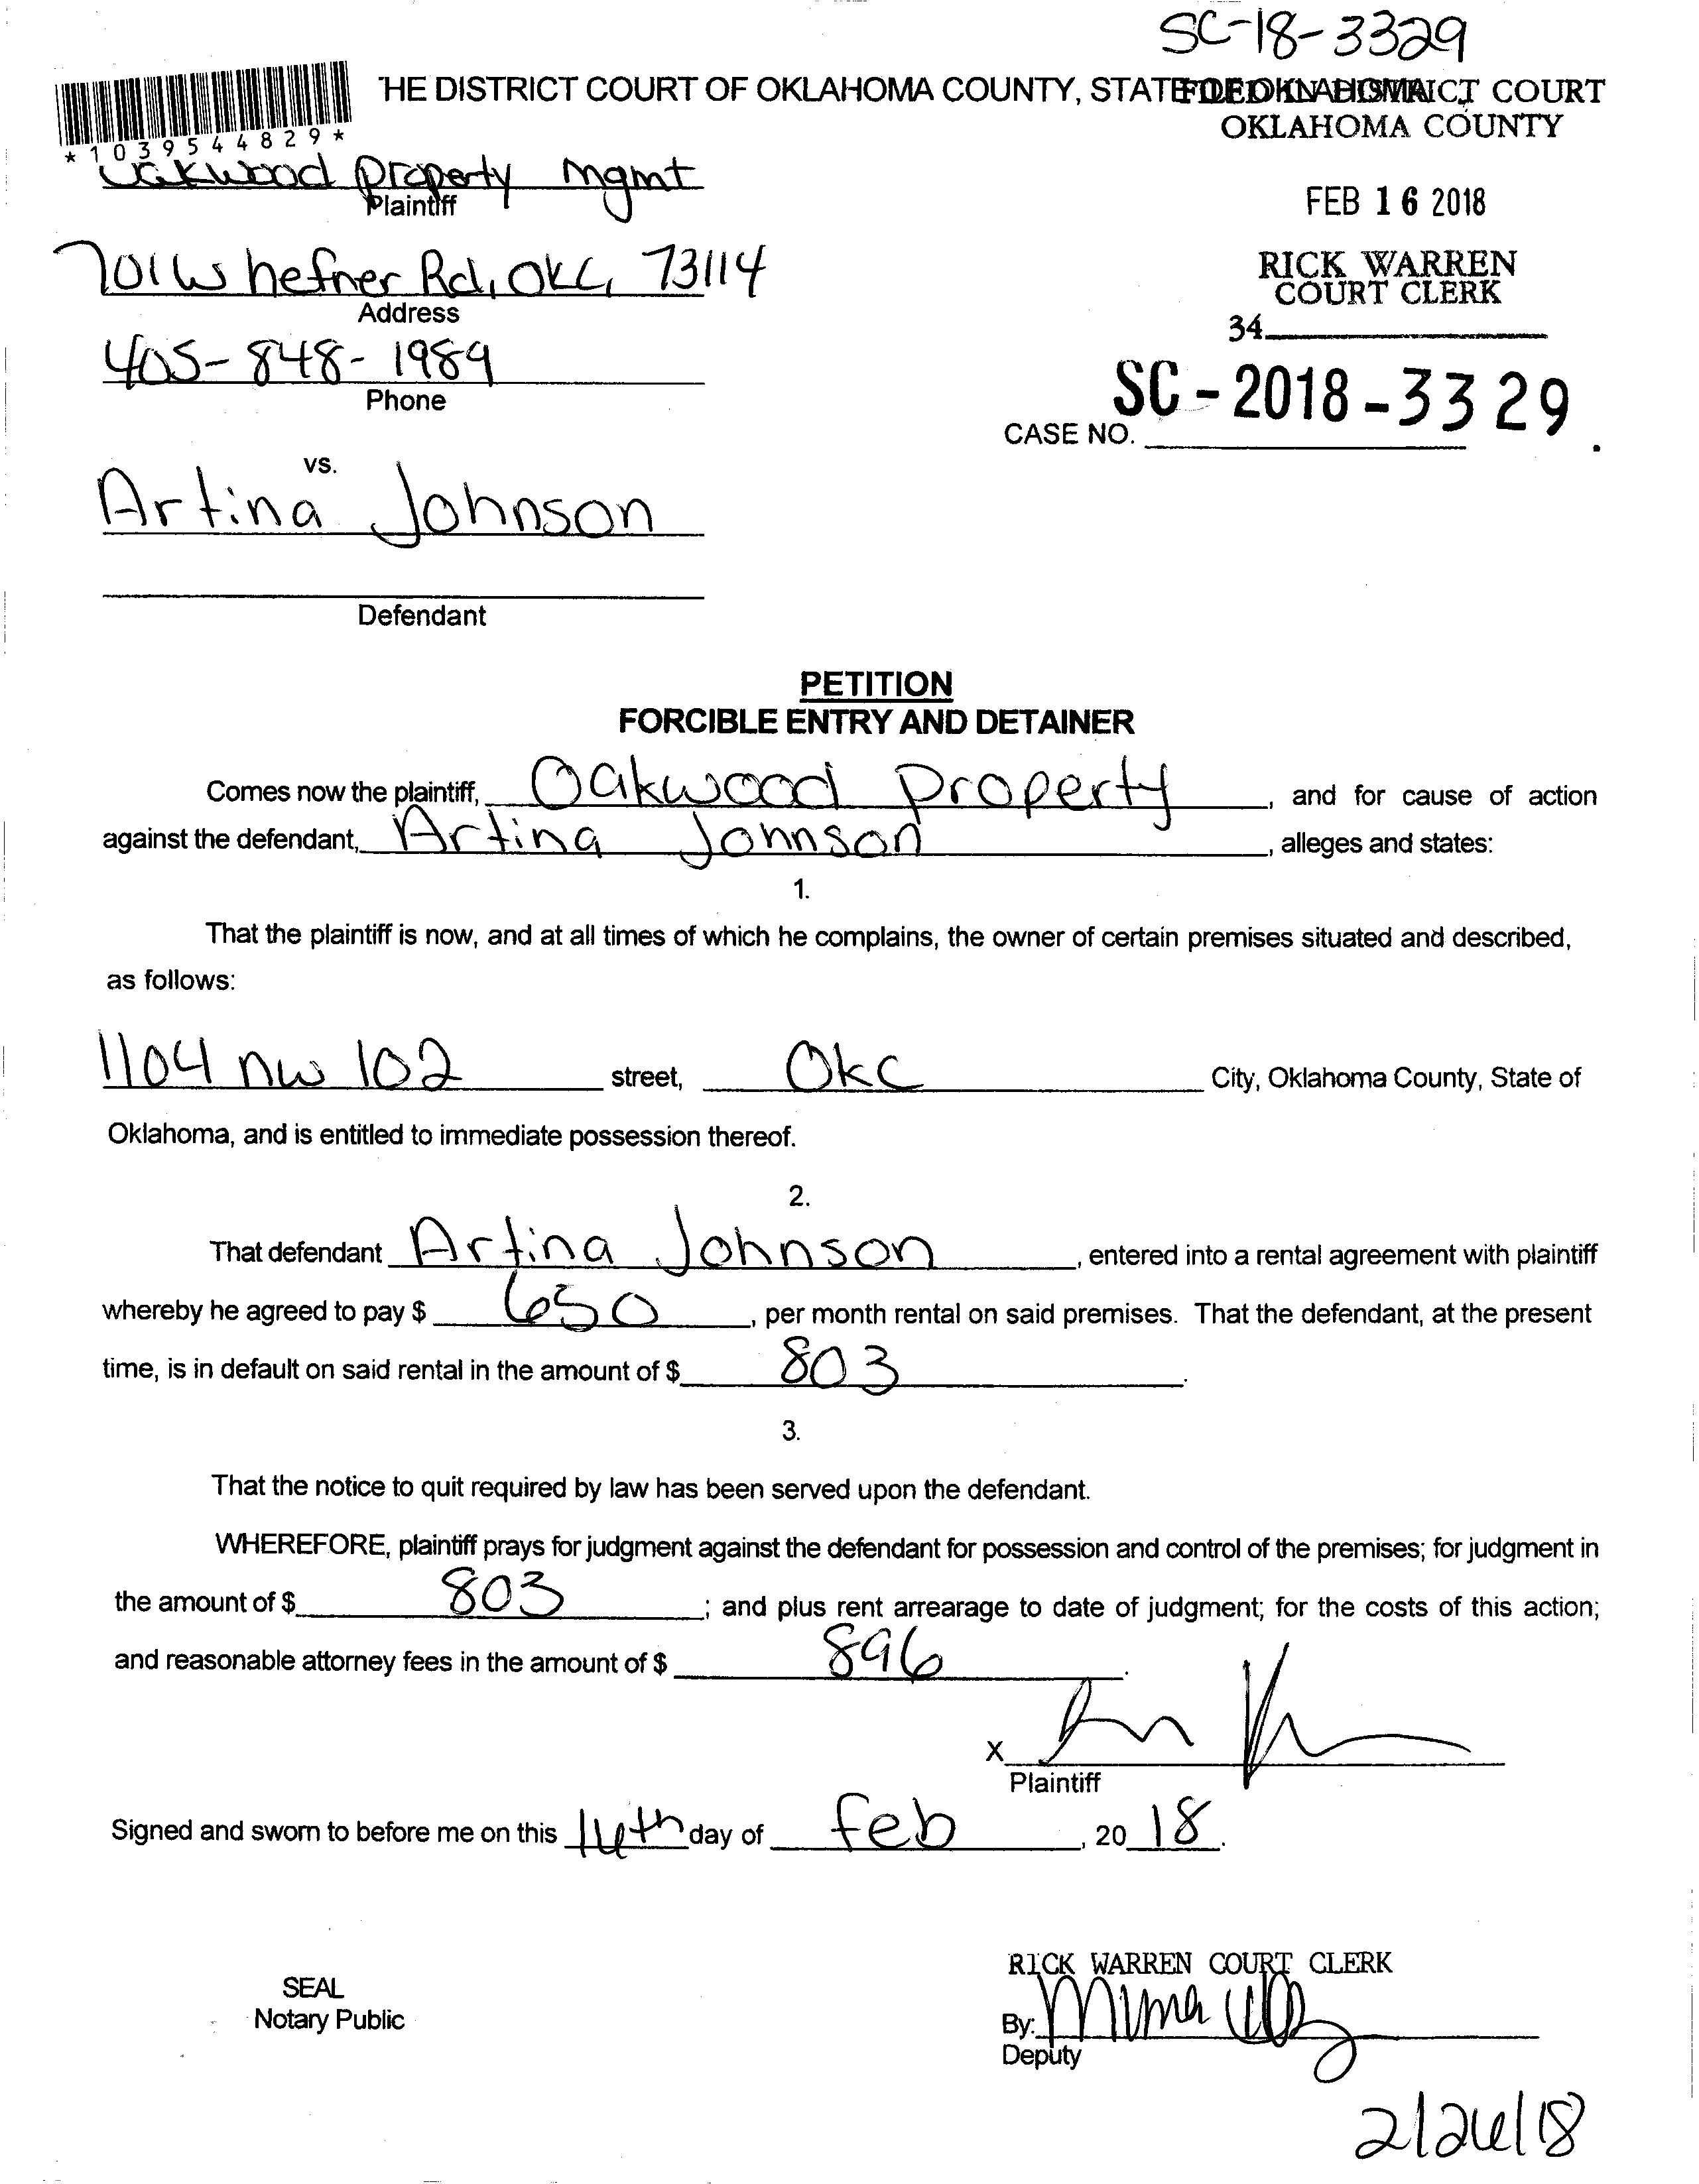 SC-18-3329
HE DISTRICT COURT OF OKLAHOMA COUNTY, STATE OF OKLAHOMA
FILED IN DISTRICT COURT
OKLAHOMA COUNTY
*1039544829*
Oakwood Property Mgmt
Plaintiff
FEB 16 2018
701 W hefner Rd, OKC, 73114
Address
RICK WARREN
COURT CLERK
34
405-848-1989
Phone
SC-2018-3329
CASE NO.
vs.
Artina Johnson
Defendant
PETITION
FORCIBLE ENTRY AND DETAINER
Comes now the plaintiff, Oakwood Property, and for cause of action
against the defendant, Artina Johnson, alleges and states:
1.
That the plaintiff is now, and at all times of which he complains, the owner of certain premises situated and described,
as follows:
1104 nw 102 street, OKC City, Oklahoma County, State of
Oklahoma, and is entitled to immediate possession thereof.
2.
That defendant Artina Johnson, entered into a rental agreement with plaintiff
whereby he agreed to pay $ 650, per month rental on said premises. That the defendant, at the present
time, is in default on said rental in the amount of $ 803.
3.
That the notice to quit required by law has been served upon the defendant.
WHEREFORE, plaintiff prays for judgment against the defendant for possession and control of the premises; for judgment in
the amount of $ 803; and plus rent arrearage to date of judgment; for the costs of this action;
and reasonable attorney fees in the amount of $ 896.
X
Plaintiff
Signed and sworn to before me on this day of feb, 2018.
SEAL
Notary Public
RICK WARREN COURT CLERK
By:
Deputy